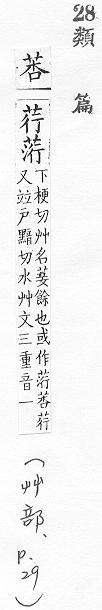 28類 篇
莕荇葕
下梗切艸名菨餘也或作葕莕荇
又竝戸黯切水艸文三重音一
(艸部、p.29)